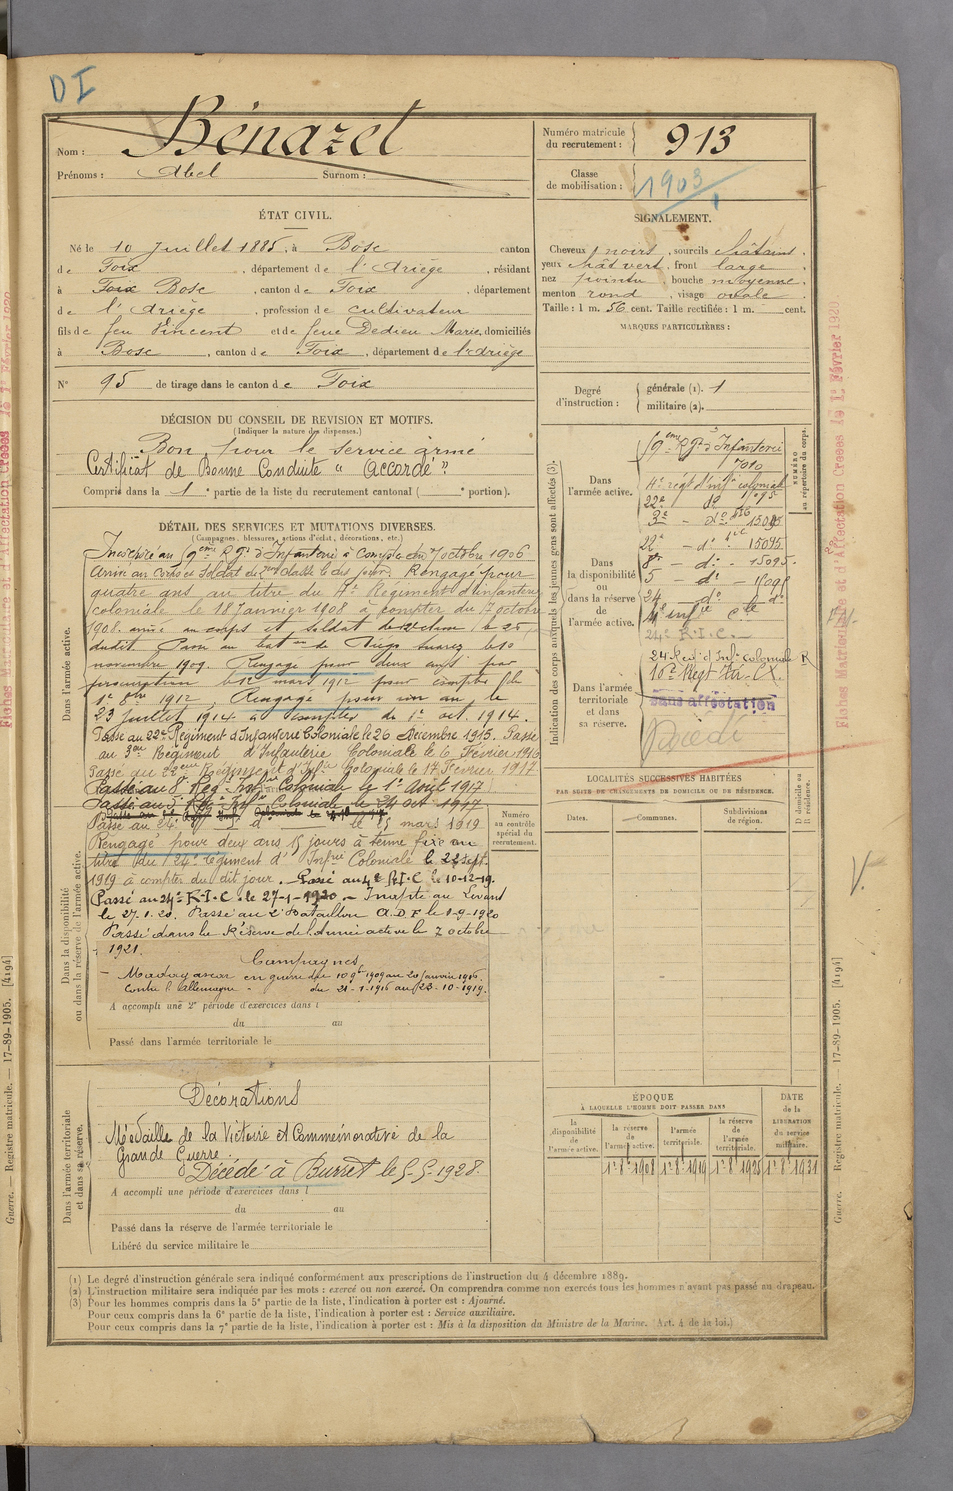 DI
Nom : Bénazet
Prénoms : Abel Surnom :
Numéro matricule du recrutement : 913
Classe de mobilisation : 1903
ÉTAT CIVIL.
Né le 10 Juillet 1885, à Bosc canton
de Foix, département de l'Ariège, résidant
à Foix Bosc, canton de Foix, département
de l'Ariège, profession de cultivateur
fils de feu Vincent et de feue Dedieu Marie, domiciliés
à Bosc, canton de Foix, département de l'Ariège
N° 95 de tirage dans le canton de Foix
SIGNALEMENT.
Cheveux noirs, sourcils châtains,
yeux chât vert, front large,
nez pointu, bouche moyenne,
menton rond, visage ovale.
Taille : 1 m. 56 cent. Taille rectifiée : 1 m. cent.
MARQUES PARTICULIÈRES :
Degré d'instruction : générale (1). 1
militaire (2).
DÉCISION DU CONSEIL DE REVISION ET MOTIFS.
(Indiquer la nature des dispenses.)
Bon pour le service armé
Certificat de Bonne Conduite "Accordé"
Compris dans la 1e partie de la liste du recrutement cantonal ( e portion).
DÉTAIL DES SERVICES ET MUTATIONS DIVERSES.
(Campagnes, blessures, actions d'éclat, décorations, etc.)
Dans l'armée active.
Incorporé au 9eme Rgt d'Infanterie à compter du 7 octobre 1906
Arrivé au corps et Soldat de 2eme classe le dit jour. Rengagé pour
quatre ans au titre du 4e Régiment d'infanterie
coloniale le 18 Janvier 1908 à compter du 7 octobre
1908. arrivé au corps et soldat de 2e classe le 25
dudit. Passé au baton de Diégo Suarez le 10
novembre 1909. Rengagé pour deux ans par
procuration le 12 mars 1912 pour compter du
1er 8bre 1912. Rengagé pour un an le
23 juillet 1914 à compter du 1er oct. 1914.
Passé au 22e Régiment d'Infanterie Coloniale le 26 Décembre 1915. Passé
au 3eme Régiment d'Infanterie Coloniale le 6 Février 1916
Passé au 22eme Régiment d'Infie Coloniale le 17 Février 1917
Passé au 8e Reg. Infrie Coloniale le 1er Août 1917
Passé au 5e Reg. Infie Coloniale le 24 oct 1917
Passé au 24e do do le 15 mars 1919
Rengagé pour deux ans 15 jours à terme fixe au
titre du 24e régiment d'Infrie Coloniale le 22 sept.
1919 à compter du dit jour. Passé au 4e R.I.C le 10-12-19.
Passé au 24e R.I.C. le 27-1-1920
le 27.1.20. Passé au 2e Bataillon A.D.F le 1-9-1920
Passé dans la Réserve de l'Armée active le 7 octobre
1921.
Campagnes
Madagascar en guerre du 10 9bre 1909 au 20 Janvier 1916
Contre l'Allemagne du 21-1-1916 au 23-10-1919.
Dans la disponibilité ou dans la réserve de l'armée active.
A accompli une 2e période d'exercices dans l
du au
Passé dans l'armée territoriale le
Numéro au contrôle spécial du recrutement.
Dans l'armée territoriale et dans sa réserve.
Décorations
Médailles de la Victoire et Commémorative de la
Grande Guerre.
Décédé à Burret le 5.5.1928.
A accompli une période d'exercices dans l
du au
Passé dans la réserve de l'armée territoriale le
Libéré du service militaire le
Indication des corps auxquels les jeunes gens sont affectés (3).
NUMÉRO au répertoire du corps.
Dans l'armée active.
9eme Rgt d'Infanterie
7010
4e régt d'infie coloniale
22e do
3e - do - 15095
22e - do - 15095
Dans la disponibilité ou dans la réserve de l'armée active.
8e - do - 15095
5 - do
24 do do
4e infie cle
24e R.I.C.
24 Regt d'Infie coloniale R
Dans l'armée territoriale et dans sa réserve.
Sans affectation
Décédé
LOCALITÉS SUCCESSIVES HABITÉES
PAR SUITE DE CHANGEMENTS DE DOMICILE OU DE RÉSIDENCE.
Dates. Communes. Subdivisions de région. D domicile ou R résidence.
ÉPOQUE
À LAQUELLE L'HOMME DOIT PASSER DANS
DATE de la LIBÉRATION du service militaire.
la disponibilité de l'armée active. la réserve de l'armée active. l'armée territoriale. la réserve de l'armée territoriale.
1er 8e 1908 1er 8e 1919 1er 8e 1925 1er 8e 1931
(1) Le degré d'instruction générale sera indiqué conformément aux prescriptions de l'instruction du 4 décembre 1889.
(2) L'instruction militaire sera indiquée par les mots : exercé ou non exercé. On comprendra comme non exercés tous les hommes n'ayant pas passé au drapeau.
(3) Pour les hommes compris dans la 5e partie de la liste, l'indication à porter est : Ajourné.
Pour ceux compris dans la 6e partie de la liste, l'indication à porter est : Service auxiliaire.
Pour ceux compris dans la 7e partie de la liste, l'indication à porter est : Mis à la disposition du Ministre de la Marine. (Art. 4 de la loi.)
Guerre. — Registre matricule. — 17-89-1905. [4194]
Guerre. — Registre matricule. — 17-89-1905. [4194]
Fiches Matricule et d'Affectation Créées le 1er Février 1920
Fiches Matricule et d'Affectation Créées le 1er Février 1920